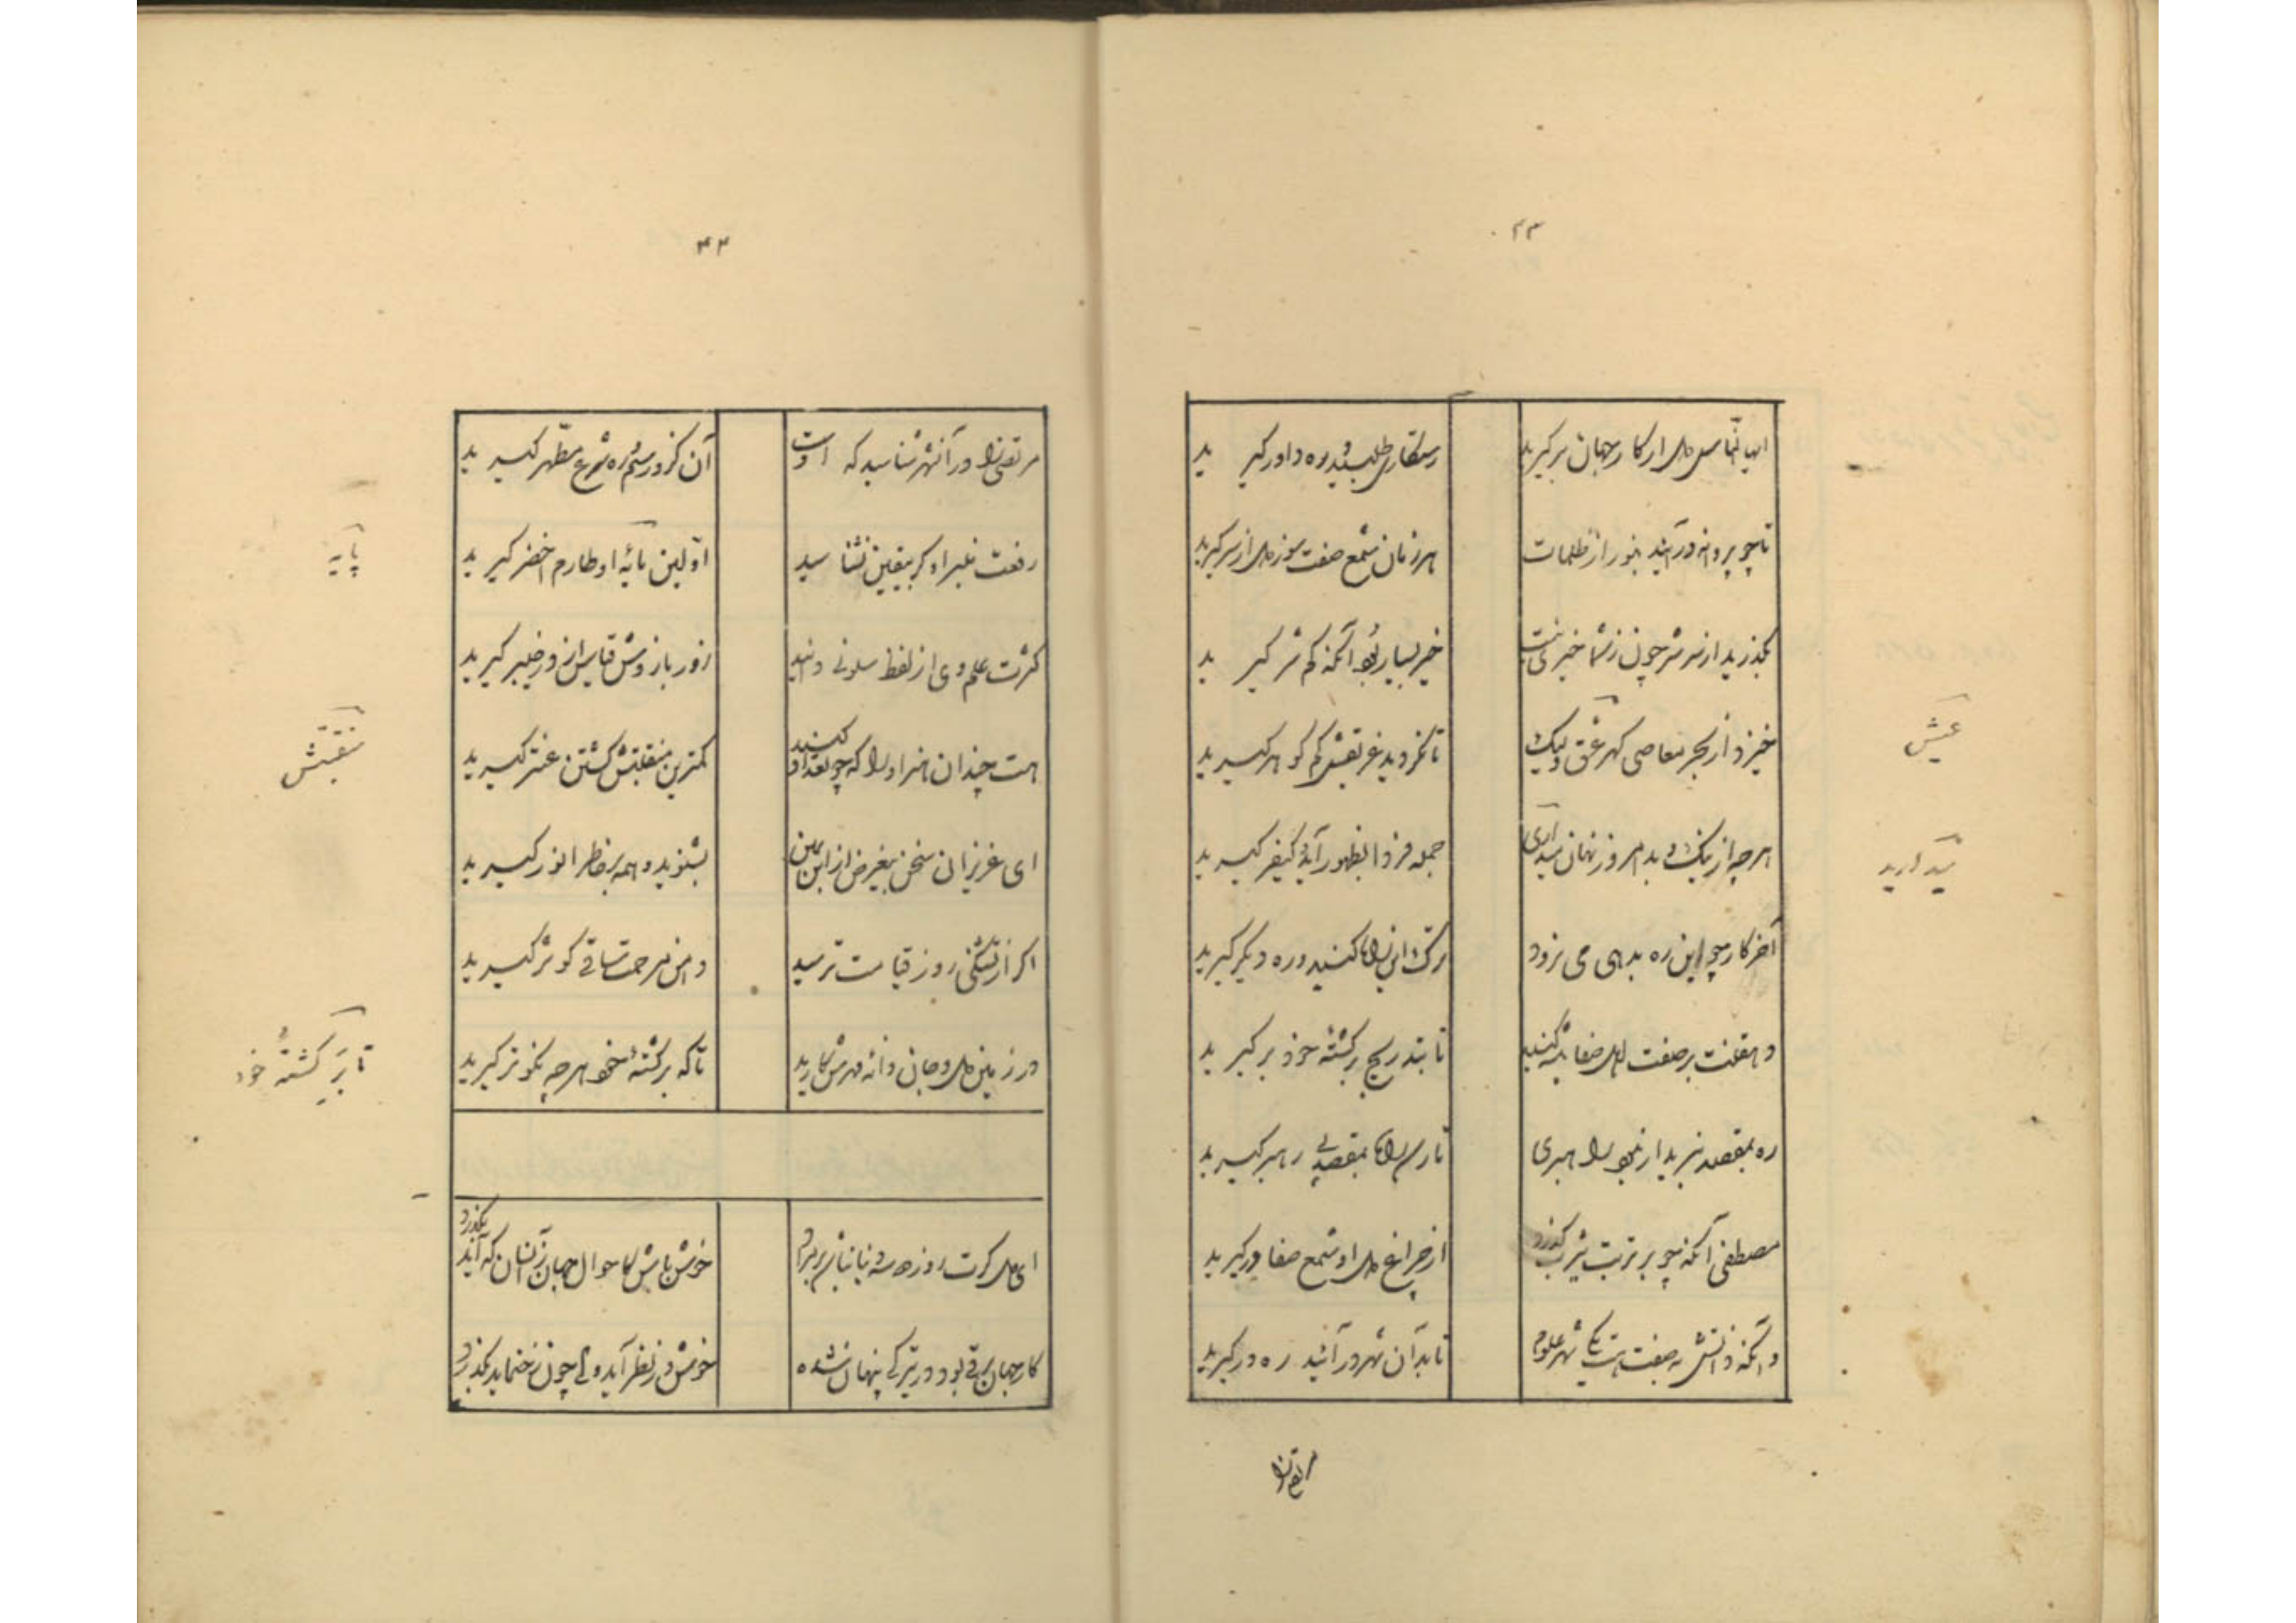 ۴۳
ایها الناس دل از کار جهان برگیرید
رستگاری طلبید و ره داور گیرید
تا چو پروانه در آیید بنور از ظلمات
هر زمان شمع صفت سوز دل از سر گیرید
بگذرید از سر شر چون ز شما خیری نیست
خیر بسیار بود آنکه کم شر گیرید
خیزد از بحر معاصی گهر ولیک
تا نگردید غریقش کم گوهر گیرید
عیش
هر چه از نیک و بد امروز نهان میدارید
جمله فردا بظهور آید و کیفر گیرید
میدارید
آخر کار چو این ره بدهی می نرود
ترک این راه کنید و ره دیگر گیرید
دهقنت بر صفت اهل صفا پیشه کنید
تا بتدریج بر کشته خود بر گیرید
ره بمقصد نبرید ار نبود راهبری
تا رسد راه بمقصد پی رهبر گیرید
مصطفی آنکه چو بر تربت یثرب گذرد
از چراغ دل او شمع صفا در گیرید
وانکه دانش به صفت هست یکی شهر علوم
تا بدان شهر در آئید ره در گیرید
مرتضی را
۴۴
مرتضی را در آن شهر شناسید که اوست
آن کزو رسم ره شرع مطهر گیرید
رفعت او گر بیقین نشناسید
اولین پایه او طارم اخضر گیرید
پایه
کثرت علم وی از لفظ سلونی دانید
زور بازوش قیاس از در خیبر گیرید
هست چندان هنر او را که چو تعداد کنید
کمترین منقبتش کشتن عنتر گیرید
منقبتش
ای عزیزان سخن بیغرض از ابن یمین
بشنوید و همه بر خاطر انور گیرید
اگر از تشنگی روز قیامت ترسید
دامن مرحمت ساقی کوثر گیرید
در زمین دل و جان دانه مهرش کارید
تا که بر کشته خود هر چه نکوتر گیرید
تا بر کشته خود
ای دل گرت روزی دو سه دنیا نباشد بر مراد
خوش باش کاحوال جهان زانسان که آید بگذرد
کار جهان برقی بود در تیرگی پنهان شده
خوش در نظر آید ولی چون رخ نماید بگذرد